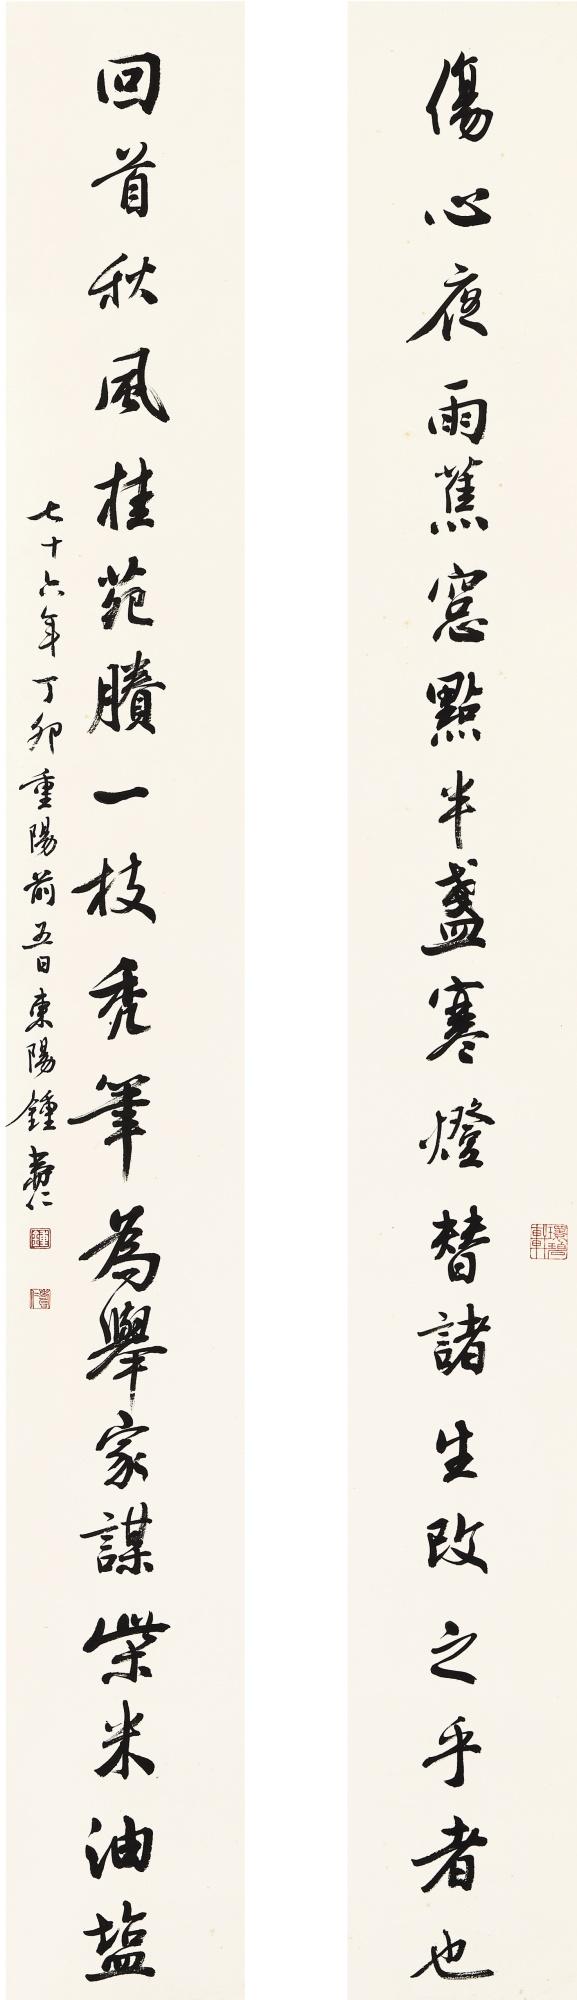 傷心夜雨蕉窓點半盞寒燈替諸生改之乎者也
回首秋風桂苑賸一枝禿筆為舉家謀柴米油塩
七十六年丁卯重陽前五日東陽鍾壽仁
環碧軒
鍾
壽仁